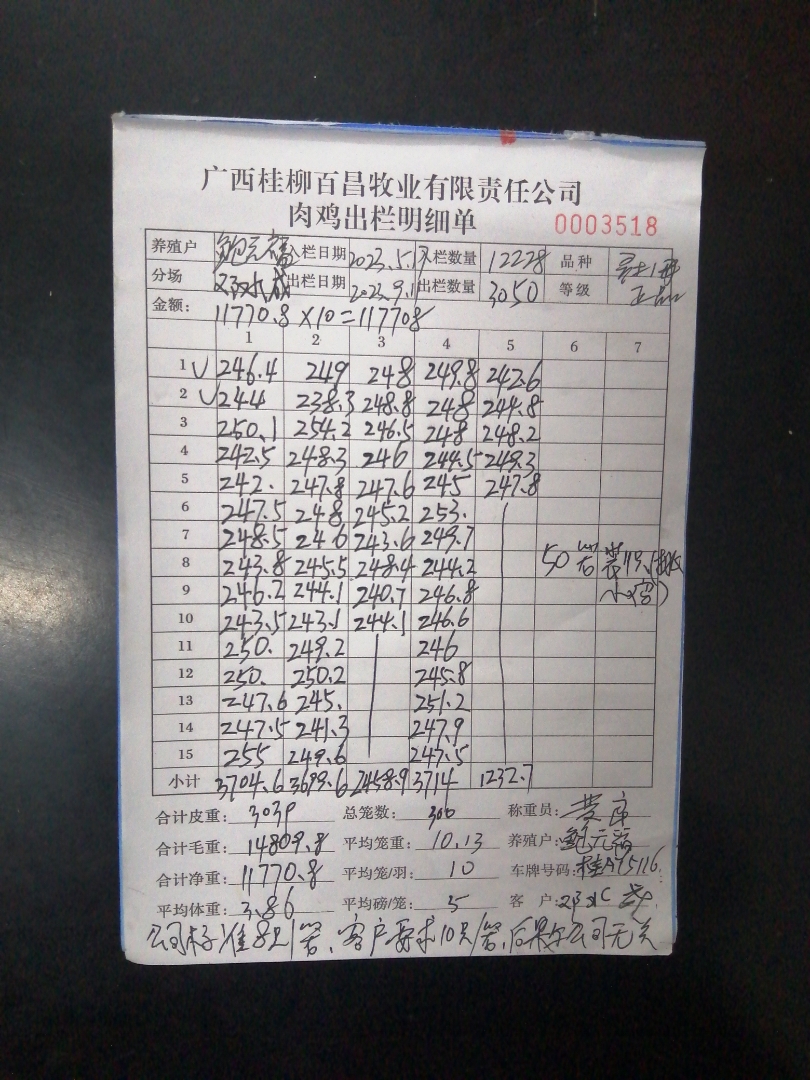 广西桂柳百昌牧业有限责任公司
肉鸡出栏明细单 0003518
养殖户 鲍元福 入栏日期 2023.5.19 入栏数量 12278 品种
分场 出栏日期 2023.9.11 出栏数量 3050 等级 正品
金额: 11770.8×10=117708
1 2 3 4 5 6 7
1 √ 246.4 249 248 249.8 242.6
2 √ 244 238.3 248.8 248 244.8
3 250.1 254.2 246.5 248 248.2
4 242.5 248.3 246 244.5 249.3
5 242. 247.8 247.6 245 247.8
6 247.5 248 245.2 253.
7 248.5 246 243.6 249.7
8 243.8 245.5 248.4 244.2 50笼装11只
9 246.2 244.1 240.7 246.8
10 243.5 243.1 244.1 246.6
11 250. 249.2 246
12 250. 250.2 245.8
13 247.6 245. 251.2
14 247.5 241.3 247.9
15 255 249.6 247.5
小计 3704.6 3699.6 2458.9 3714 1232.7
合计皮重: 3039 总笼数: 300 称重员:
合计毛重: 14809.8 平均笼重: 10.13 养殖户: 鲍元福
合计净重: 11770.8 平均笼/羽: 10 车牌号码: 桂A75116
平均体重: 3.86 平均磅/笼: 5 客户:
公司标准8只/笼、客户要求10只/笼、后果与公司无关